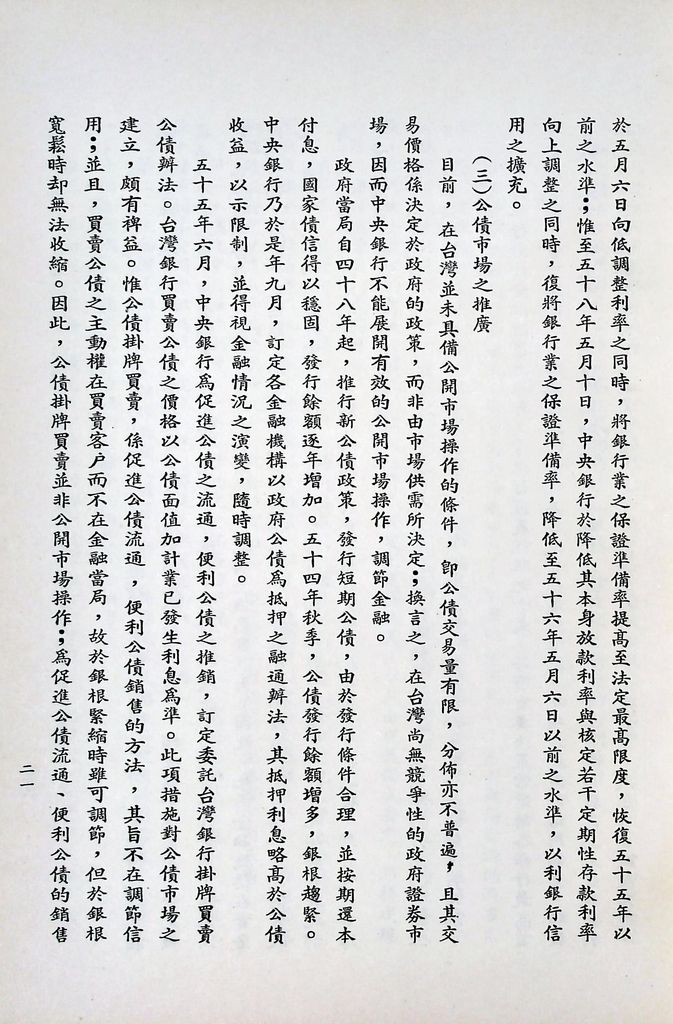 於五月六日向低調整利率之同時，將銀行業之保證準備率提高至法定最高限度，恢復五十五年以
前之水準；惟至五十八年五月十日，中央銀行於降低其本身放款利率與核定若干定期性存款利率
向上調整之同時，復將銀行業之保證準備率，降低至五十六年五月六日以前之水準，以利銀行信
用之擴充。
(三)公債市場之推廣
目前，在台灣並未具備公開市場操作的條件，即公債交易量有限，分佈亦不普遍，且其交
易價格係決定於政府的政策，而非由市場供需所決定；換言之，在台灣尚無競爭性的政府證券市
場，因而中央銀行不能展開有效的公開市場操作，調節金融。
政府當局自四十八年起，推行新公債政策，發行短期公債，由於發行條件合理，並按期還本
付息，國家債信得以穩固，發行餘額逐年增加。五十四年秋季，公債發行餘額增多，銀根趨緊。
中央銀行乃於是年九月，訂定各金融機構以政府公債為抵押之融通辦法，其抵押利息略高於公債
收益，以示限制，並得視金融情況之演變，隨時調整。
五十五年六月，中央銀行為促進公債之流通，便利公債之推銷，訂定委託台灣銀行掛牌買賣
公債辦法。台灣銀行買賣公債之價格以公債面值加計業已發生利息為準。此項措施對公債市場之
建立，頗有裨益。惟公債掛牌買賣，係促進公債流通，便利公債銷售的方法，其旨不在調節信
用；並且，買賣公債之主動權在買賣客戶而不在金融當局，故於銀根緊縮時雖可調節，但於銀根
寬鬆時却無法收縮。因此，公債掛牌買賣並非公開市場操作；為促進公債流通、便利公債的銷售
二一